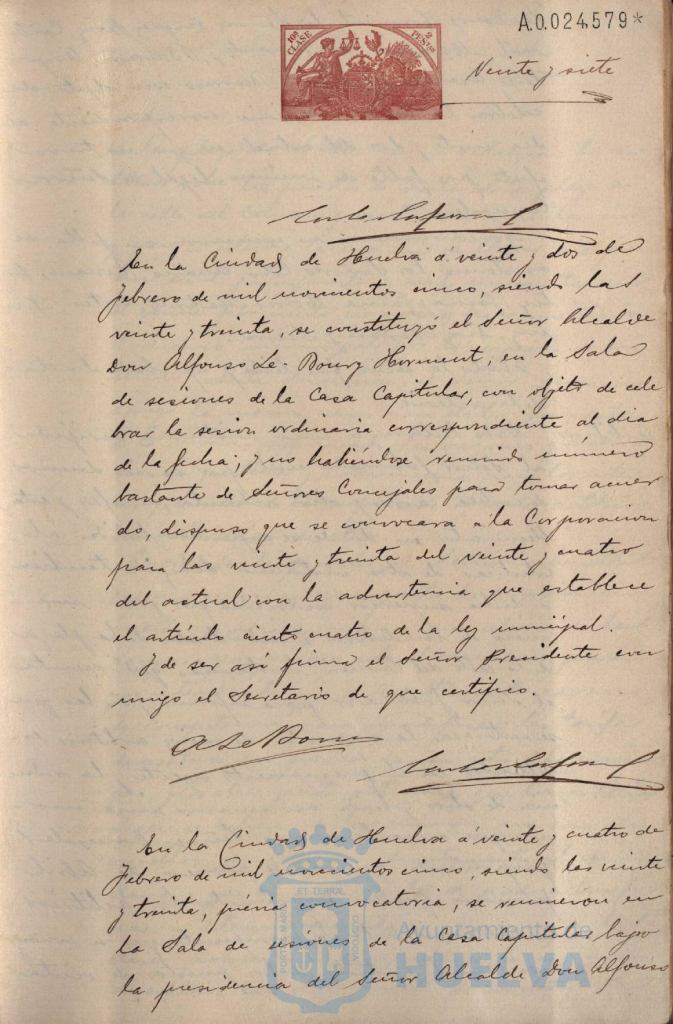 A.0.024,579*
10ª CLASE
2 PESTAS
Veinte y siete
En la Ciudad de Huelva á veinte y dos de
Febrero de mil novecientos cinco, siendo las
veinte y treinta, se constituyó el Señor Alcalde
Don Alfonso Le-Bourg Horment, en la Sala
de sesiones de la Casa Capitular, con objeto de cele
brar la sesion ordinaria correspondiente al dia
de la fecha; y no habiéndose reunido número
bastante de Señores Concejales para tomar acuer
do, dispuso que se convocara á la Corporacion
para las veinte y treinta del veinte y cuatro
del actual con la advertencia que establece
el artículo ciento cuatro de la ley municipal.
Y de ser así firma el Señor Presidente con
migo el Secretario de que certifico.
A Le Bourg
En la Ciudad de Huelva á veinte y cuatro de
Febrero de mil novecientos cinco, siendo las veinte
y treinta, prévia convocatoria, se reunieron en
la Sala de sesiones de la Casa Capitular bajo
la presidencia del Señor Alcalde Don Alfonso
PORTUS MARIS ET TERRAE CUSTODIA
Ayuntamiento de
HUELVA